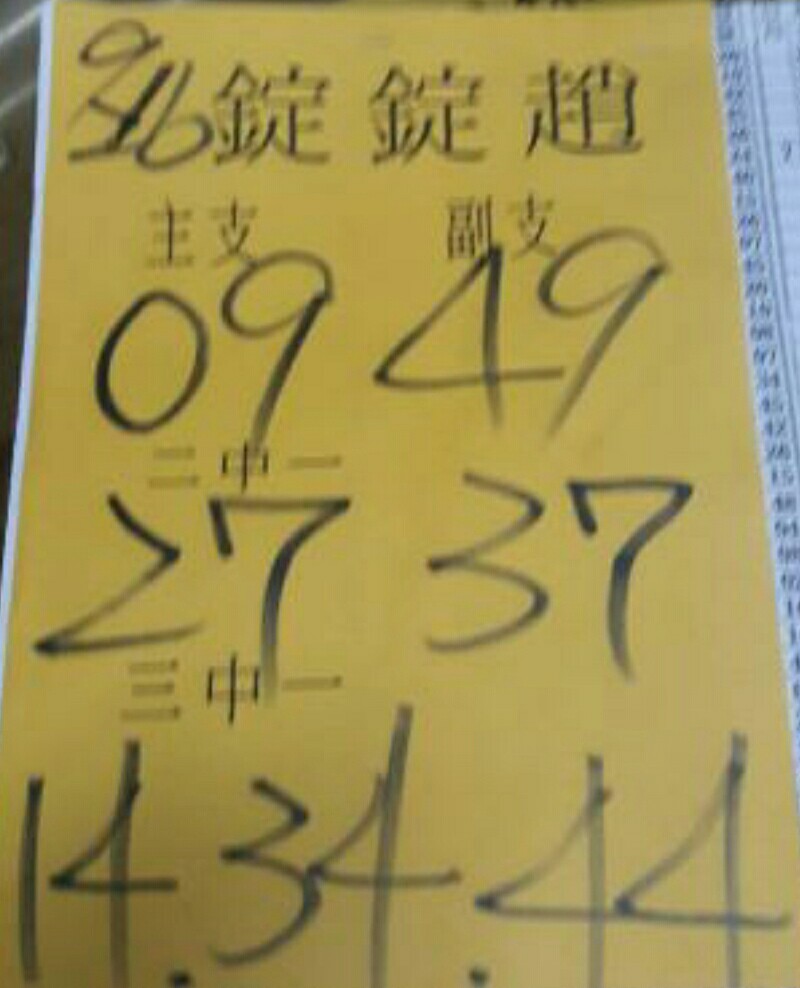 9/16 錠錠趙
主支 副支
09 49
二中一
27 37
三中一
14.34.44